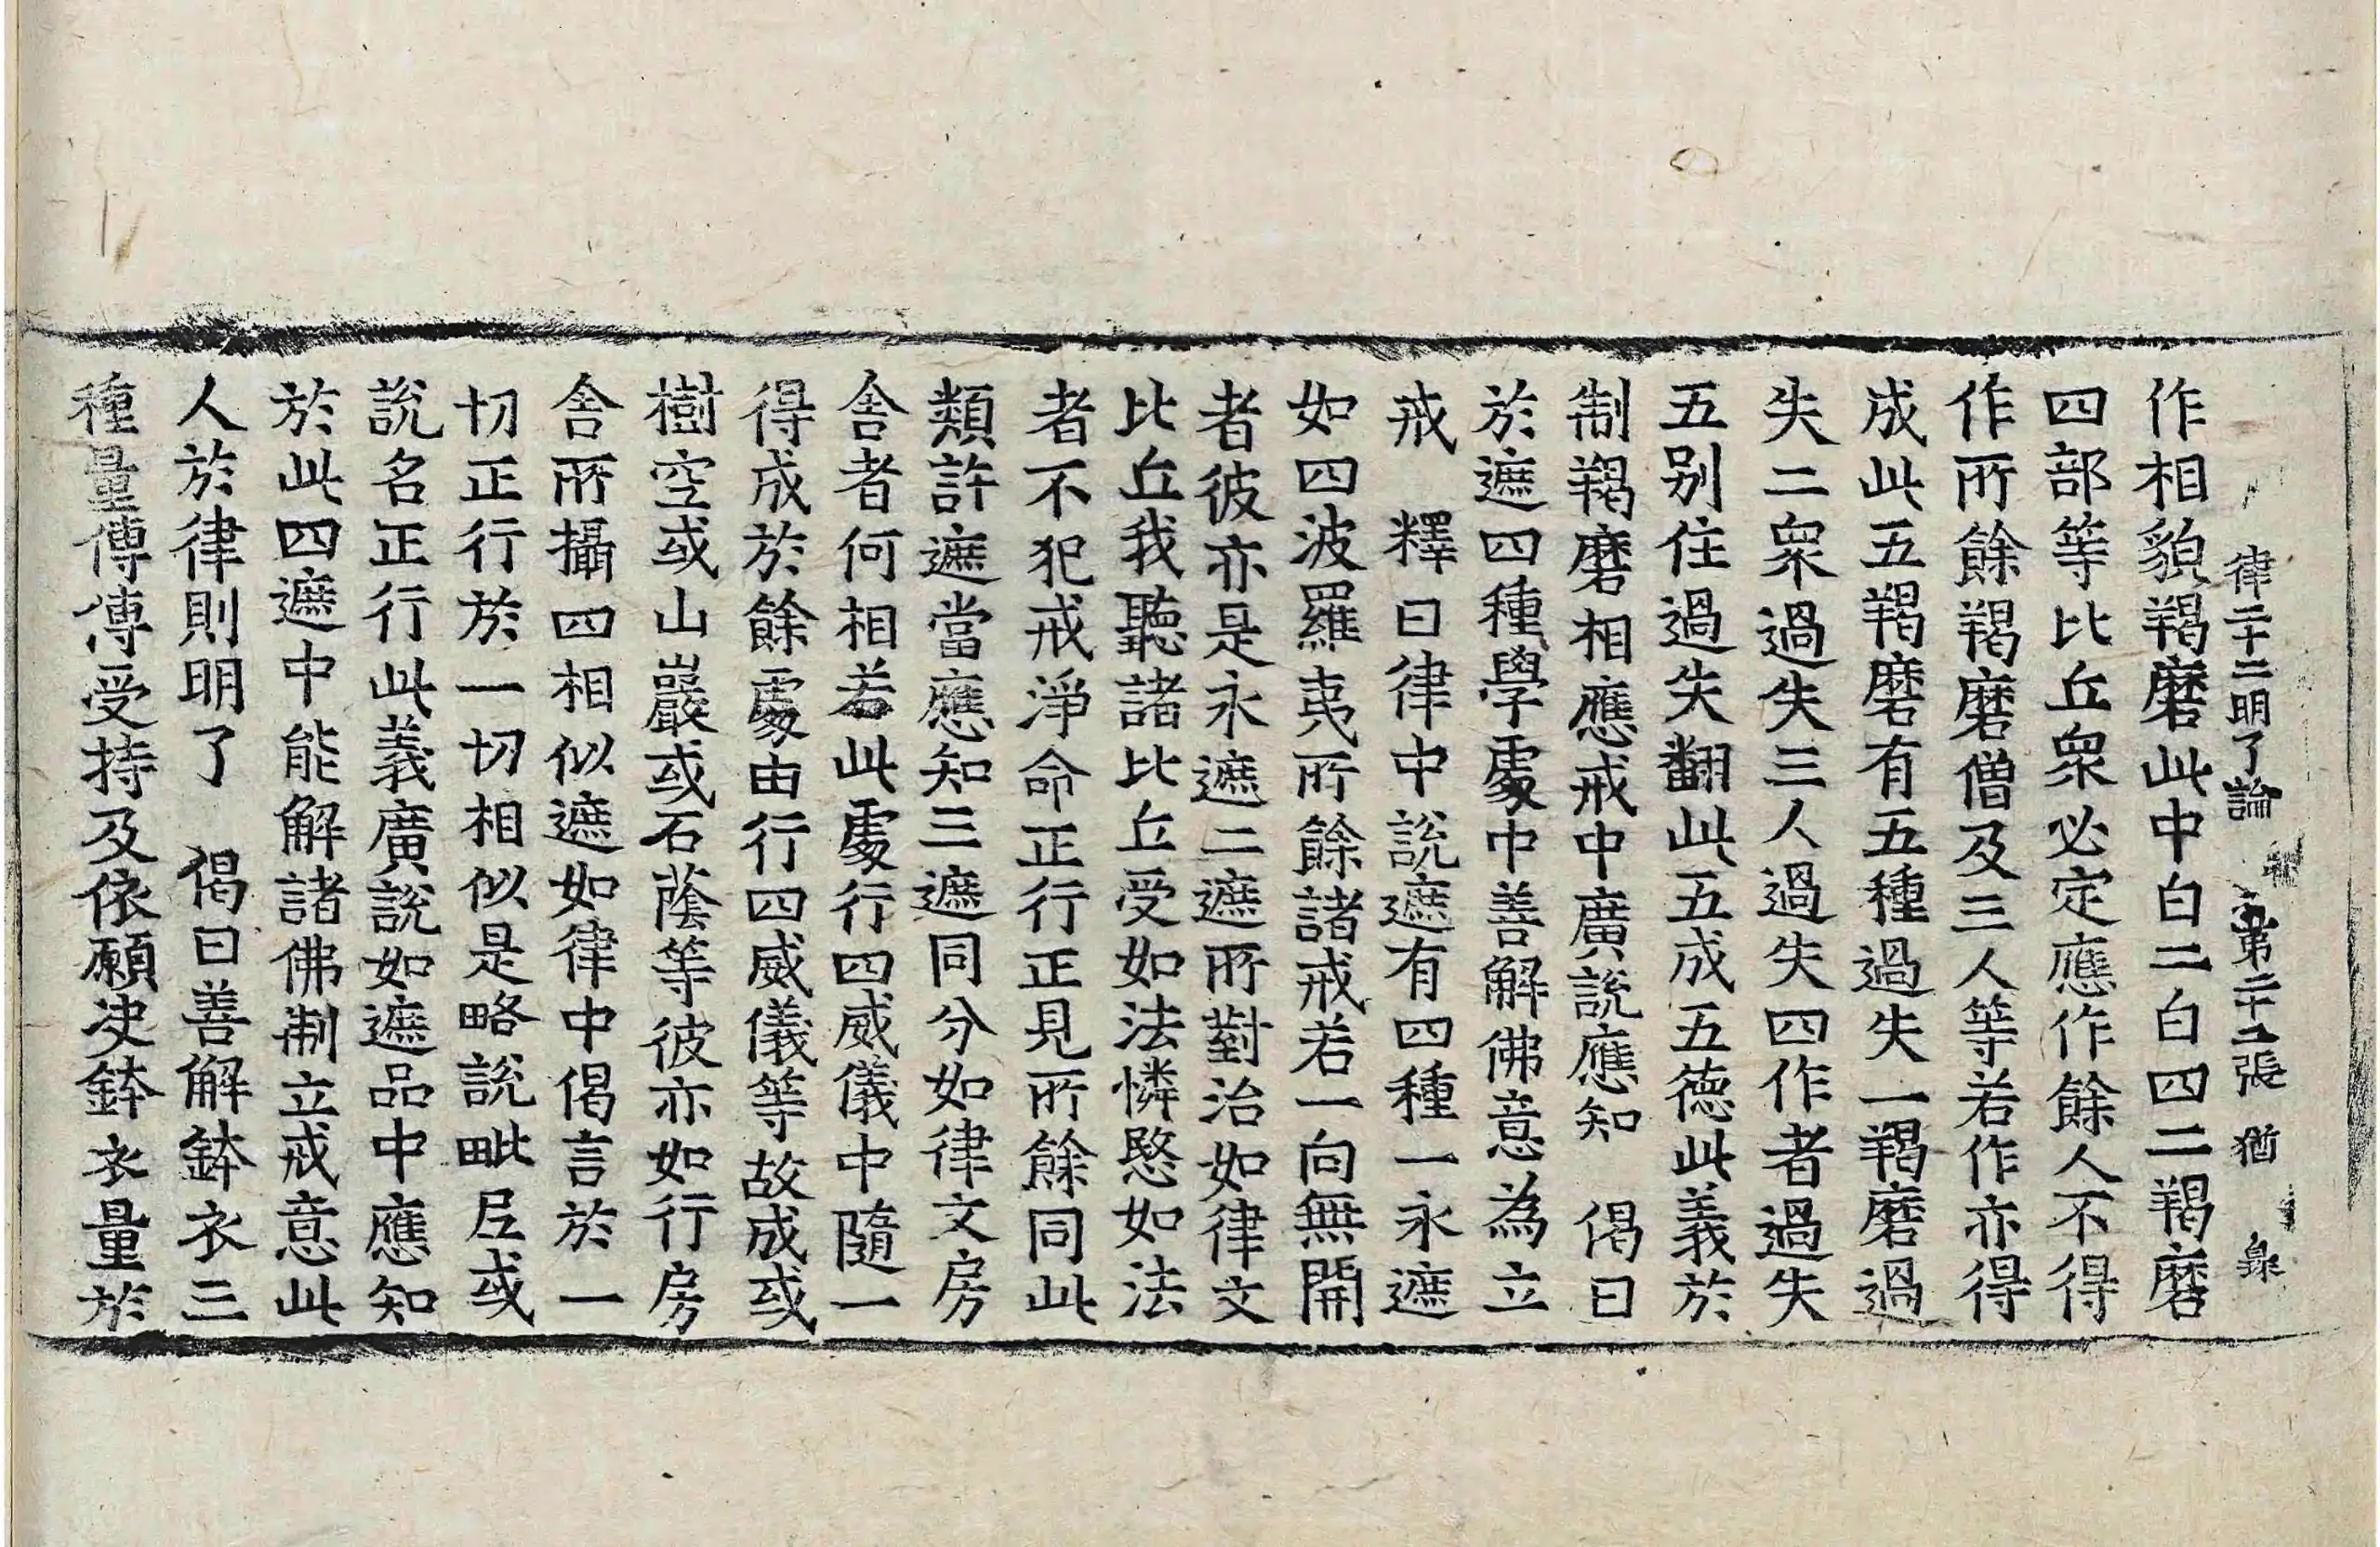 律二十二明了論 第二十五張 猶
作相貌羯磨此中白二白四二羯磨
四部等比丘眾必定應作餘人不得
作所餘羯磨僧及三人等若作亦得
成此五羯磨有五種過失一羯磨過
失二眾過失三人過失四作者過失
五别住過失翻此五成五德此義於
制羯磨相應戒中廣說應知 偈曰
於遮四種學處中善解佛意為立
戒 釋曰律中說遮有四種一永遮
如四波羅夷所餘諸戒若一向無開
者彼亦是永遮二遮所對治如律文
比丘我聽諸比丘受如法憐愍如法
者不犯戒淨命正行正見所餘同此
類許遮當應知三遮同分如律文房
舍者何相若此處行四威儀中隨一
得成於餘處由行四威儀等故成或
樹空或山巖或石蔭等彼亦如行房
舍所攝四相似遮如律中偈言於一
切正行於一切相似是略說毗尼或
說名正行此義廣說如遮品中應知
於此四遮中能解諸佛制立戒意此
人於律則明了 偈曰善解鉢衣三
種量傳傳受持及依願決鉢衣量於